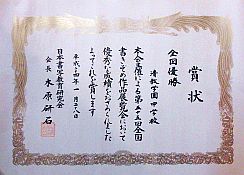 賞状
全国優勝
清教学園中学校
本会主催による第三十五回全国
書きぞめ作品展覧会において
優秀な成績をおさめられました
よってこれを賞します
平成二四年一月二八日
日本書写教育研究会
会長 水原研石